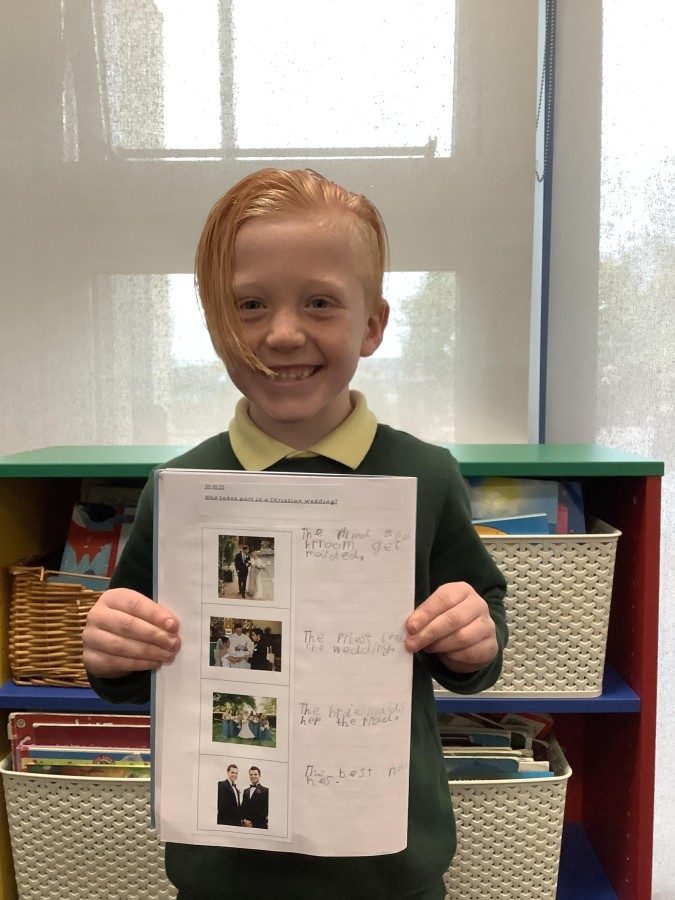 20.10.25
Who takes part in a Christian wedding?
The Bried and
brroom get
marded.
The Priest lea
the wedding.
The bridesmaids
hep the Briad.
The best
hes.